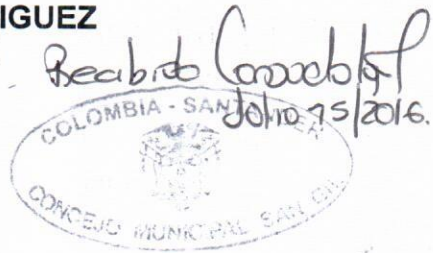 IGUEZ
Recibido
Julio 15/2016.
COLOMBIA - SANTANDER
CONCEJO MUNICIPAL SAN GIL